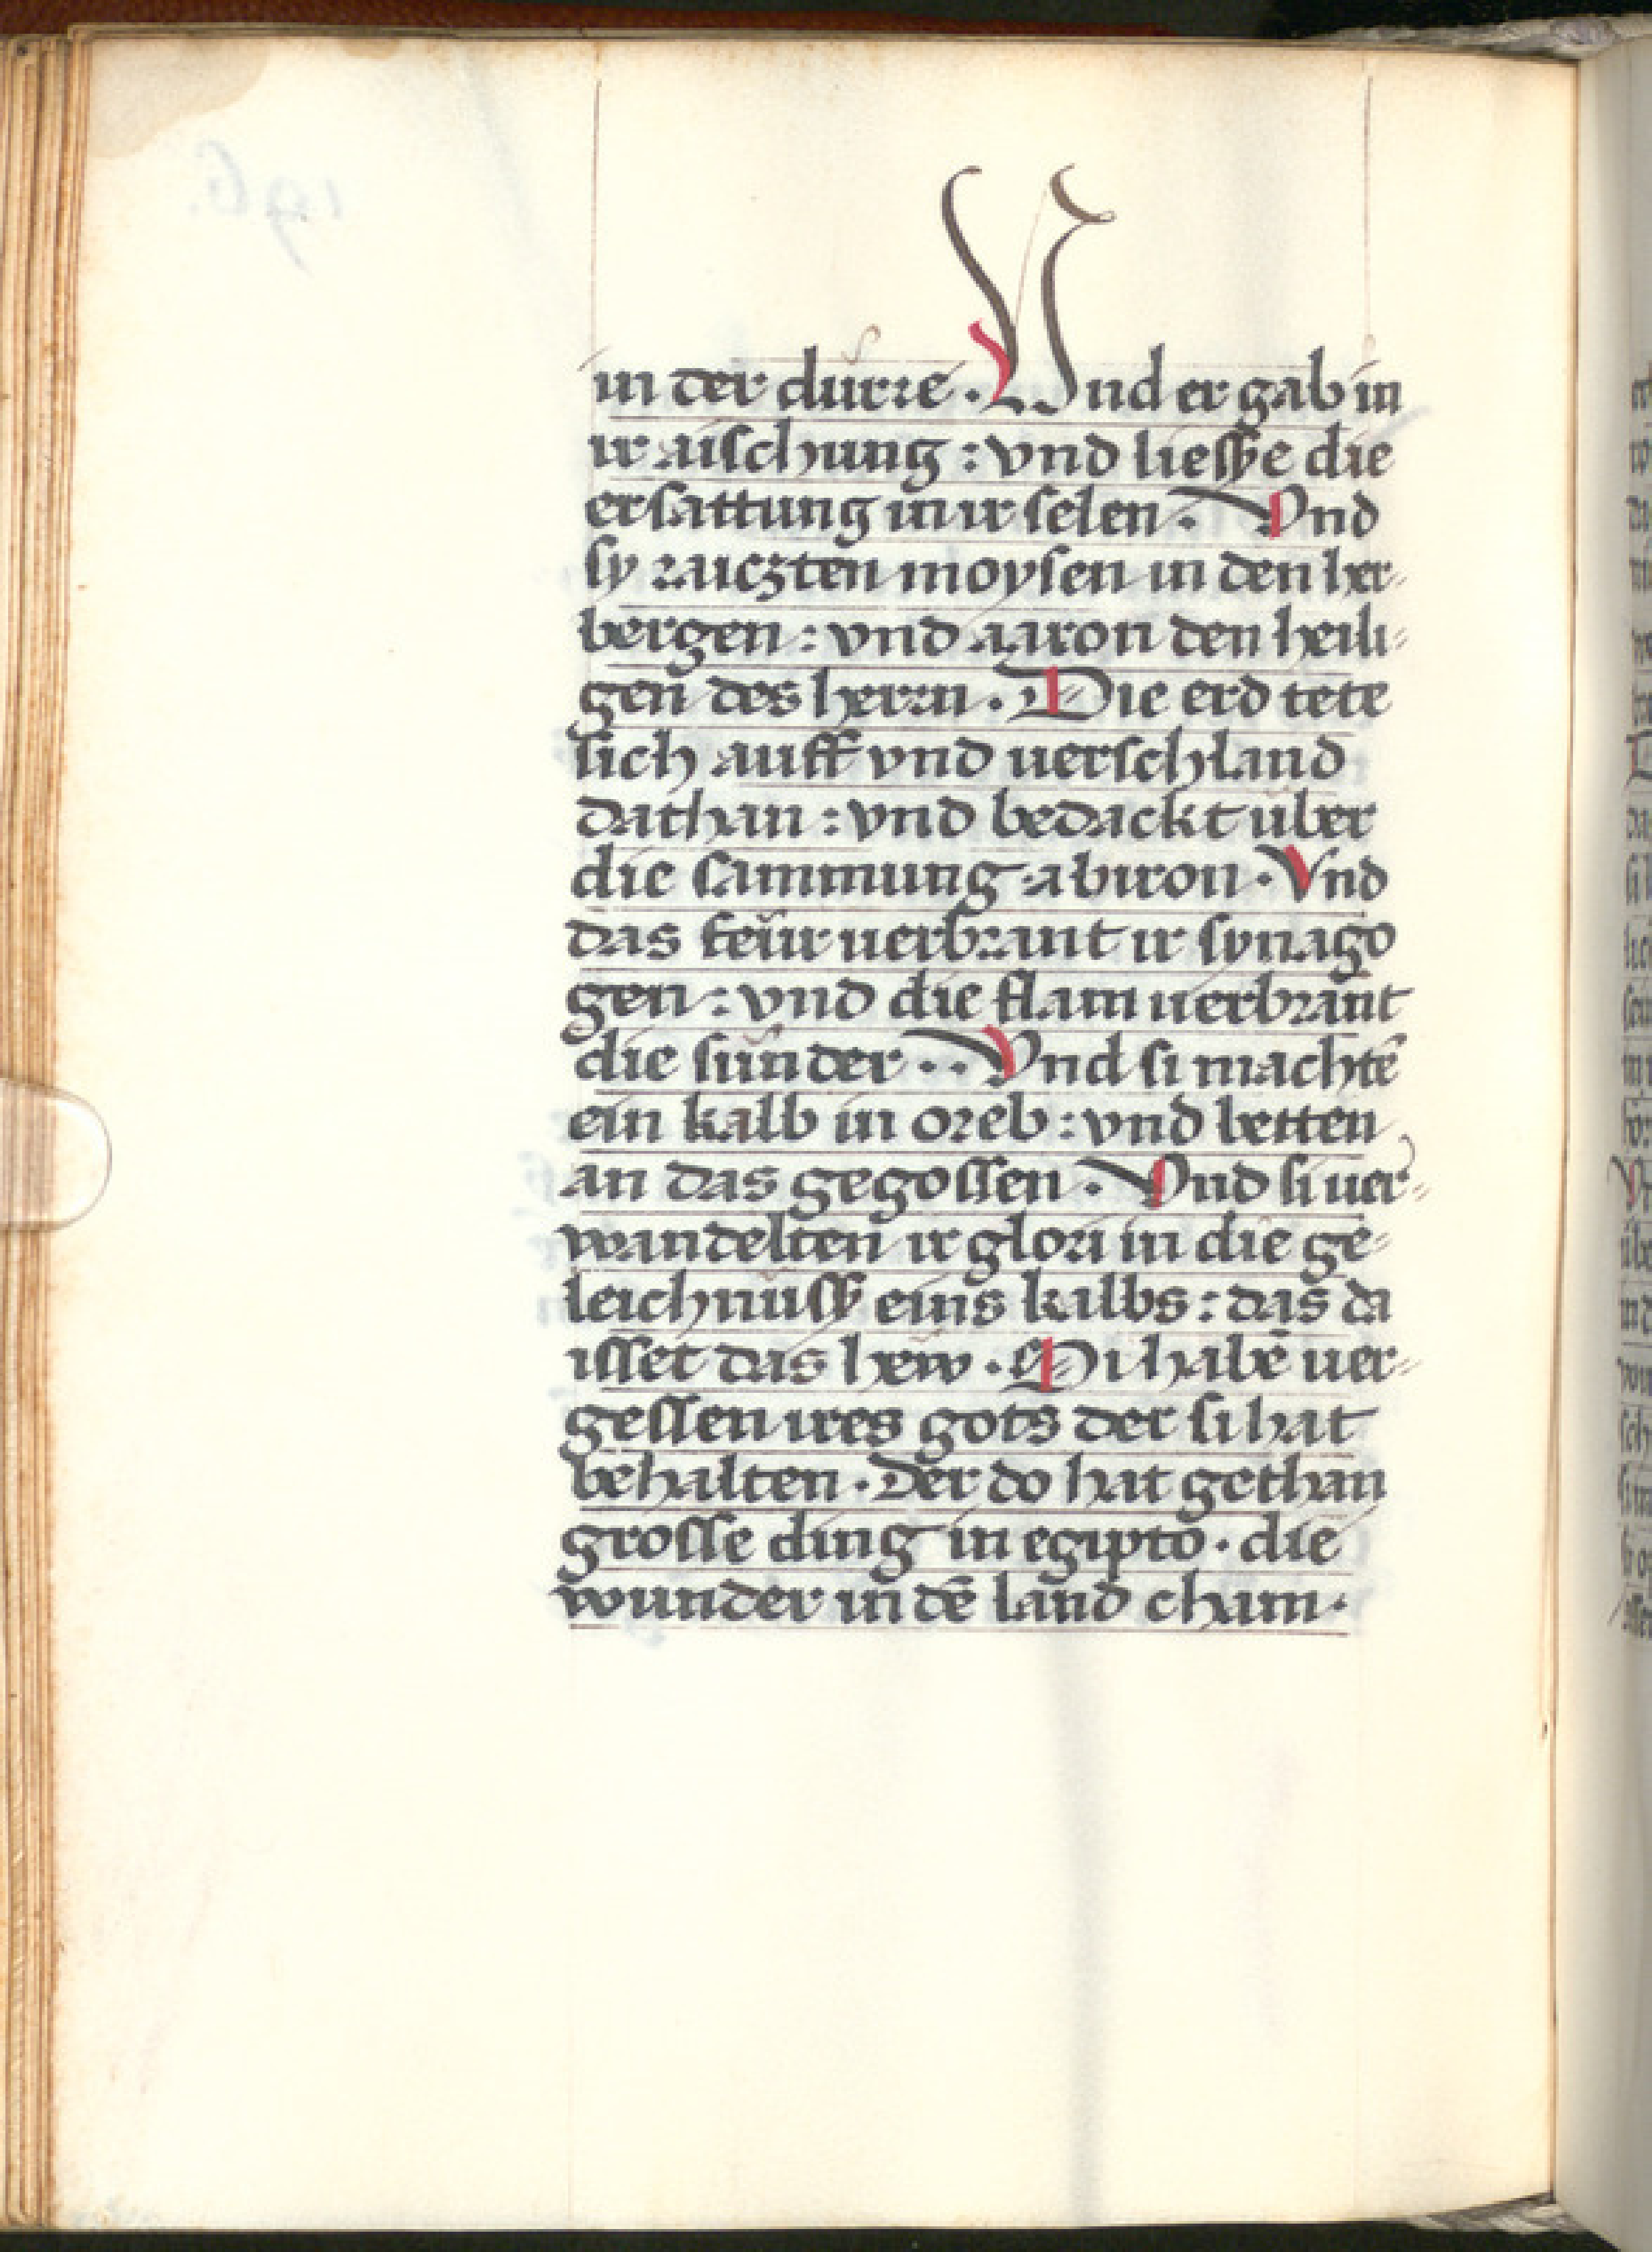 in der dürre · Und er gab in
ir aischung : vnd liesse die
ersattung in ir selen · Vnd
sy raiczten moysen in den her-
bergen : vnd aaron den heili-
gen des herrn · Die erd tete
sich auff vnd uerschland
dathan : vnd bedackt über
die sammung abiron · Vnd
das feür uerbrant ir synago
gen : vnd die flam uerbrant
die sünder · · Vnd si machtē
ein kalb in oreb : vnd betten
an das gegossen · Vnd si uer-
wandelten ir glori in die ge-
leichnüss eins kalbs : das da
isset das hew · Si habē uer-
gessen ires gots der si hat
behalten · Der do hat gethan
grosse ding in egipto · die
wunder in dē land cham ·